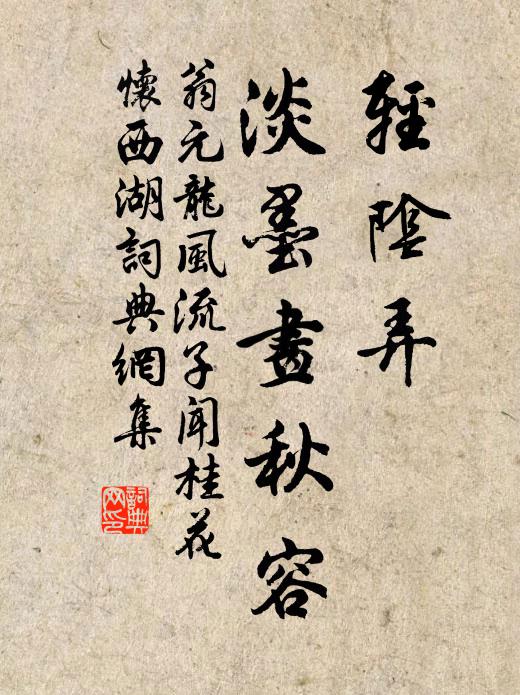 輕陰弄
淡墨畫秋容
翁元龍風流子聞桂花
懷西湖詞典網集
詞典網印